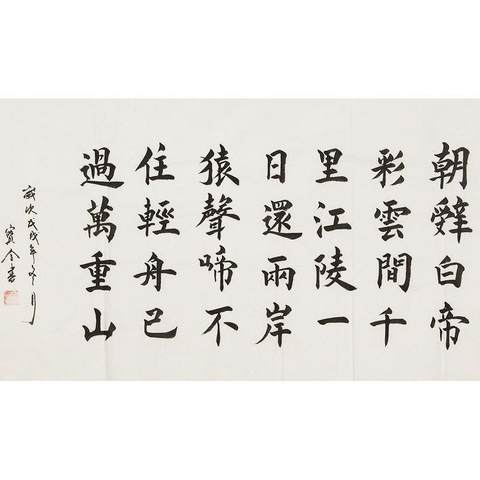 朝辭白帝
彩雲間千
里江陵一
日還兩岸
猿聲啼不
住輕舟已
過萬重山
歲次戊戌年冬月
寶全書